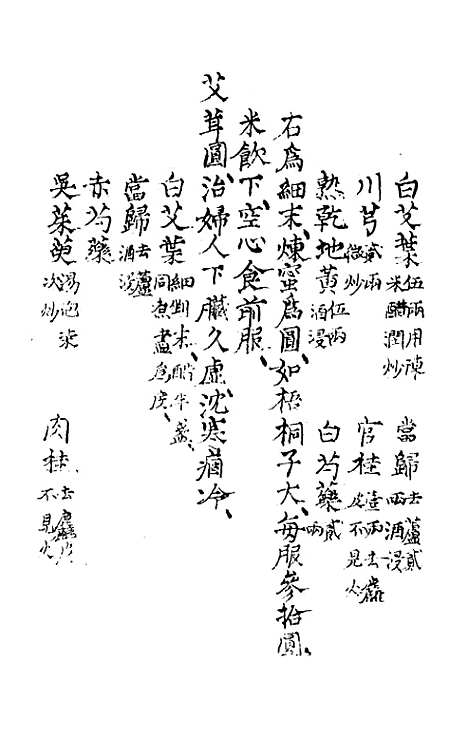 白艾葉伍兩用陳米醋潤炒　當歸去蘆貳兩酒浸
川芎貳兩微炒　官桂壹兩去麁皮不見火
熟乾地黃伍兩酒浸　白芍藥貳兩
右爲細末煉蜜爲圓如梧桐子大每服參拾圓
米飲下空心食前服
艾茸圓治婦人下臟久虛沈寒痼冷
白艾葉細剉米醋半盞同煮盡爲度
當歸去蘆酒浸
赤芍藥
吳茱萸湯泡柒次炒　肉桂去麁皮不見火